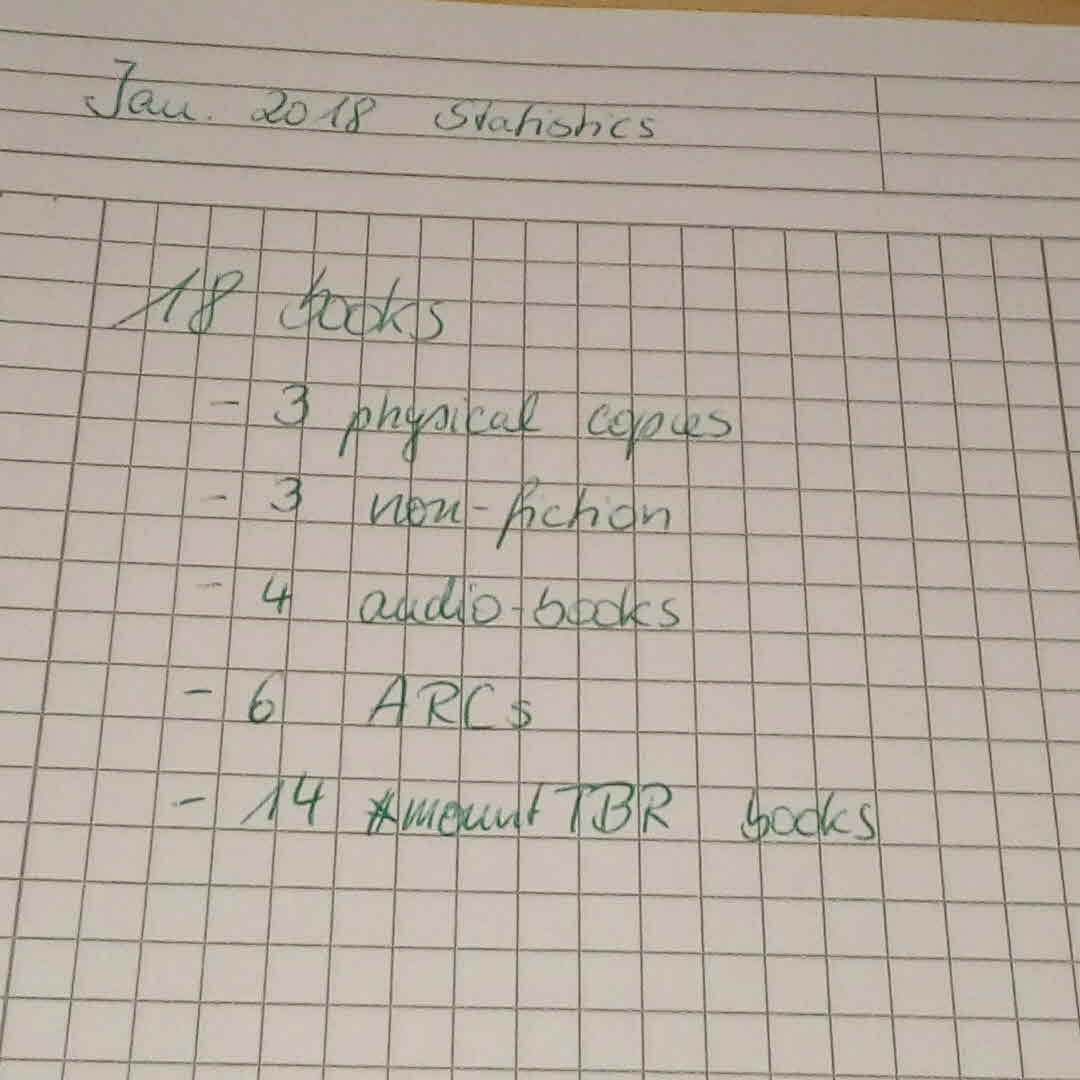 Jan. 2018 Statistics
18 books
- 3 physical copies
- 3 non-fiction
- 4 audio-books
- 6 ARCs
- 14 #mountTBR books